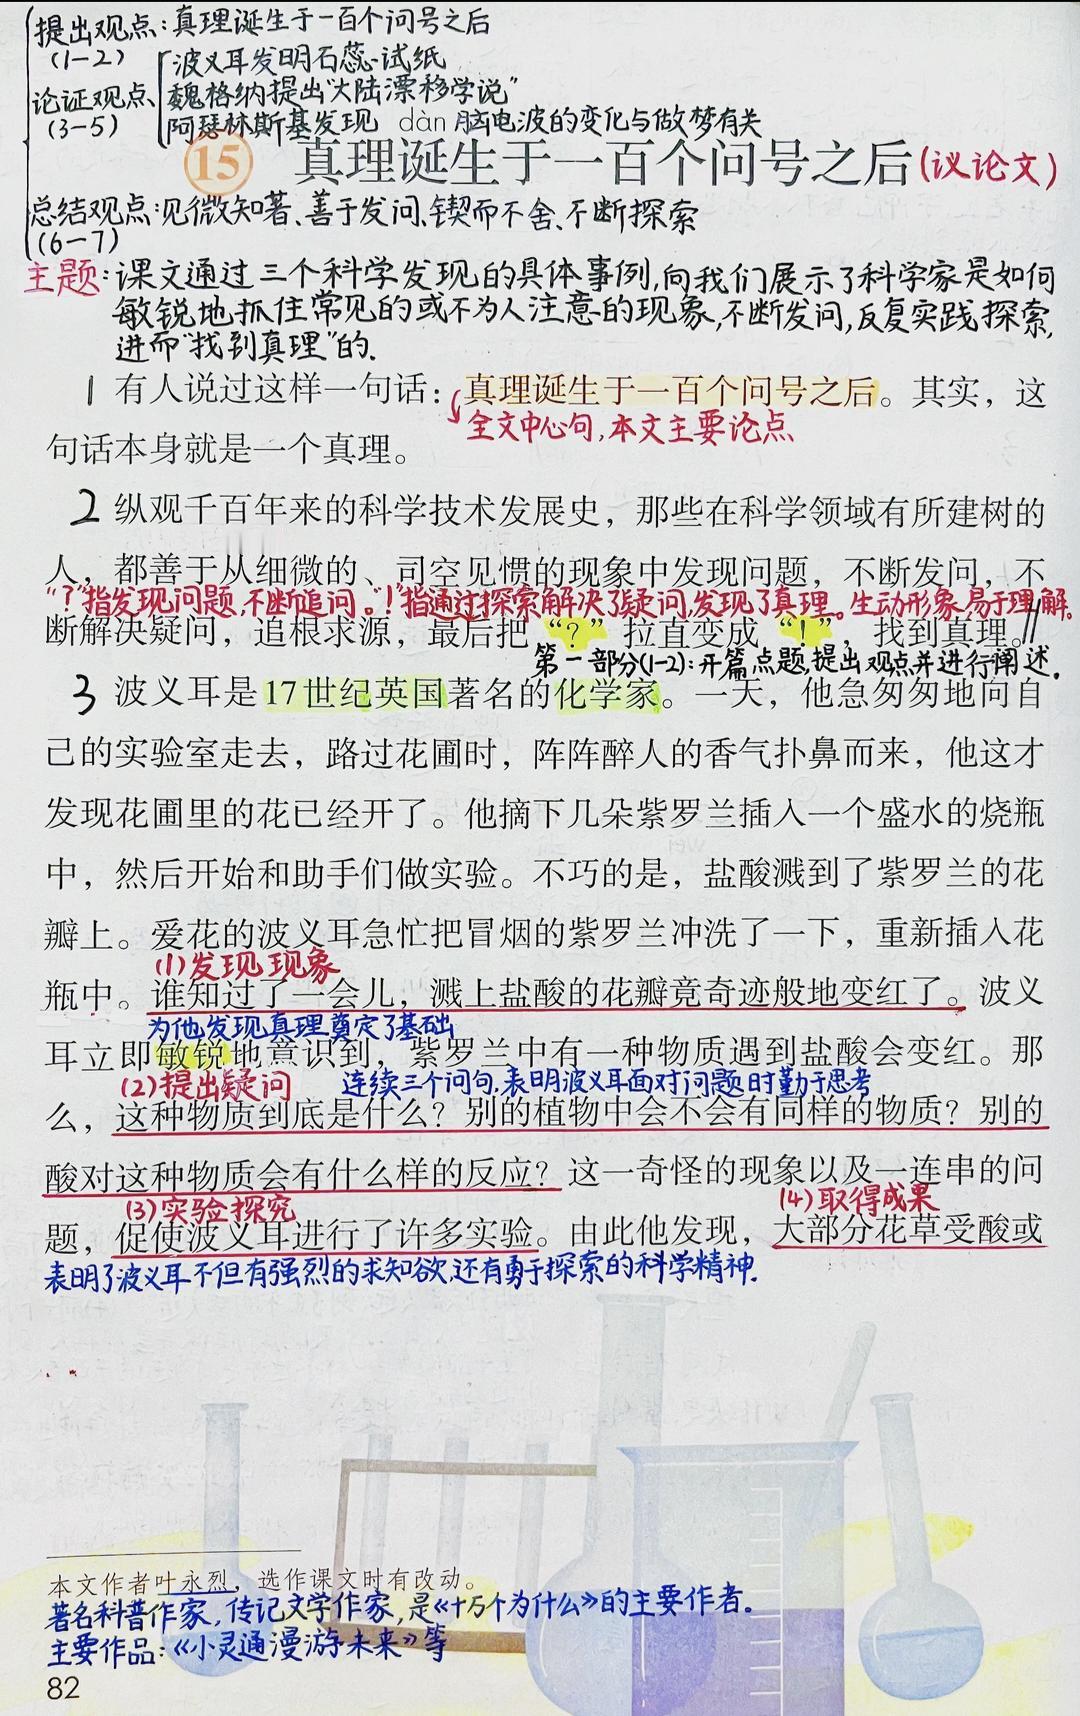 提出观点：真理诞生于一百个问号之后
(1-2)
波义耳发明石蕊试纸
论证观点、
魏格纳提出“大陆漂移学说”
(3-5)
阿瑟林斯基发现 脑电波的变化与做梦有关
dàn
15 真理诞生于一百个问号之后(议论文)
总结观点：见微知著、善于发问、锲而不舍、不断探索
(6-7)
主题：课文通过三个科学发现的具体事例，向我们展示了科学家是如何
敏锐地抓住常见的或不为人注意的现象，不断发问，反复实践探索，
进而“找到真理”的.
1 有人说过这样一句话：真理诞生于一百个问号之后。其实，这
全文中心句，本文主要论点
句话本身就是一个真理。
2 纵观千百年来的科学技术发展史，那些在科学领域有所建树的
人，都善于从细微的、司空见惯的现象中发现问题，不断发问，不
“？”指发现问题、不断追问。“！”指通过探索解决了疑问，发现了真理。生动形象，易于理解。
断解决疑问，追根求源，最后把“？”拉直变成“！”，找到真理。//
第一部分(1-2)：开篇点题，提出观点并进行阐述.
3 波义耳是17世纪英国著名的化学家。一天，他急匆匆地向自
己的实验室走去，路过花圃时，阵阵醉人的香气扑鼻而来，他这才
发现花圃里的花已经开了。他摘下几朵紫罗兰插入一个盛水的烧瓶
中，然后开始和助手们做实验。不巧的是，盐酸溅到了紫罗兰的花
瓣上。爱花的波义耳急忙把冒烟的紫罗兰冲洗了一下，重新插入花
(1)发现现象
瓶中。谁知过了一会儿，溅上盐酸的花瓣竟奇迹般地变红了。波义
为他发现真理奠定了基础
耳立即敏锐地意识到，紫罗兰中有一种物质遇到盐酸会变红。那
(2)提出疑问 连续三个问句，表明波义耳面对问题时勤于思考
么，这种物质到底是什么？别的植物中会不会有同样的物质？别的
酸对这种物质会有什么样的反应？这一奇怪的现象以及一连串的问
(3)实验探究 (4)取得成果
题，促使波义耳进行了许多实验。由此他发现，大部分花草受酸或
表明了波义耳不但有强烈的求知欲，还有勇于探索的科学精神.
本文作者叶永烈，选作课文时有改动。
著名科普作家，传记文学作家，是《十万个为什么》的主要作者.
主要作品：《小灵通漫游未来》等
82